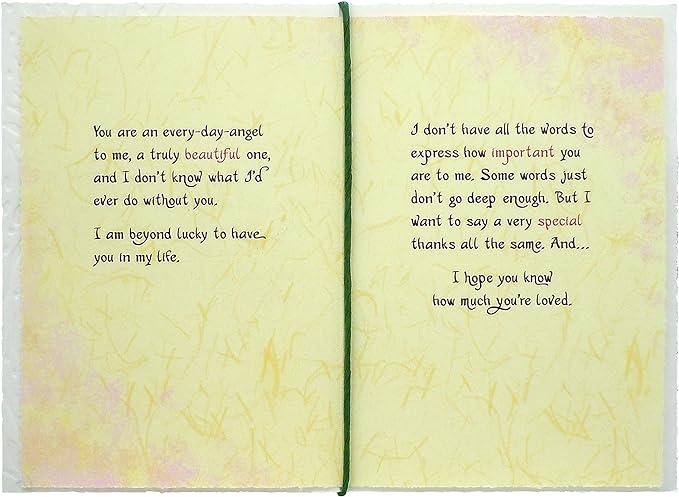 You are an every-day-angel
to me, a truly beautiful one,
and I don't know what I'd
ever do without you.
I am beyond lucky to have
you in my life.
I don't have all the words to
express how important you
are to me. Some words just
don't go deep enough. But I
want to say a very special
thanks all the same. And...
I hope you know
how much you're loved.